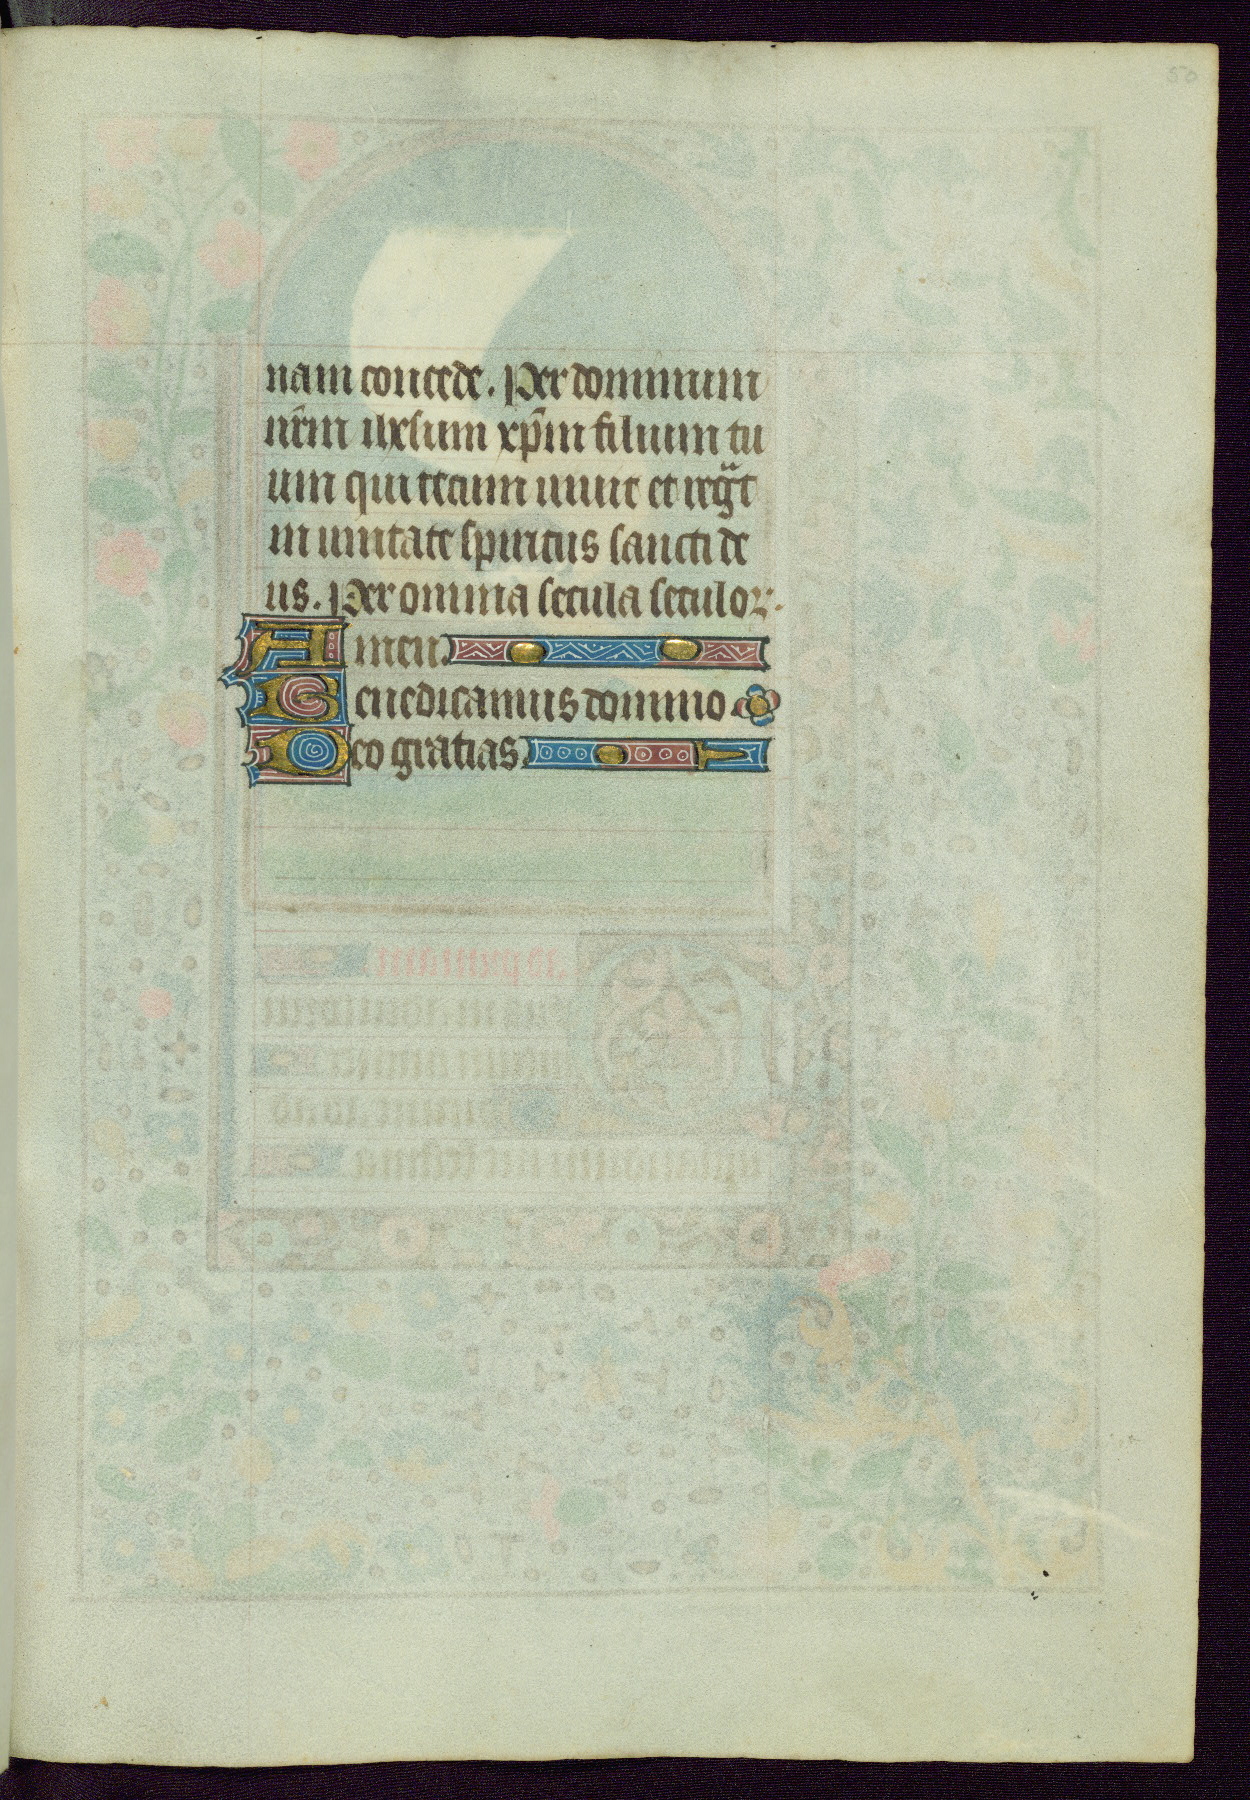 50
nam concede. Per dominum
nr̄m ihesum xp̄m filium tu
um qui tecum uiuit et regͣt
in unitate spiritus sancti de
us. Per omnia secula seculoꝝ.
Amen.
Benedicamus domino.
Deo gratias.